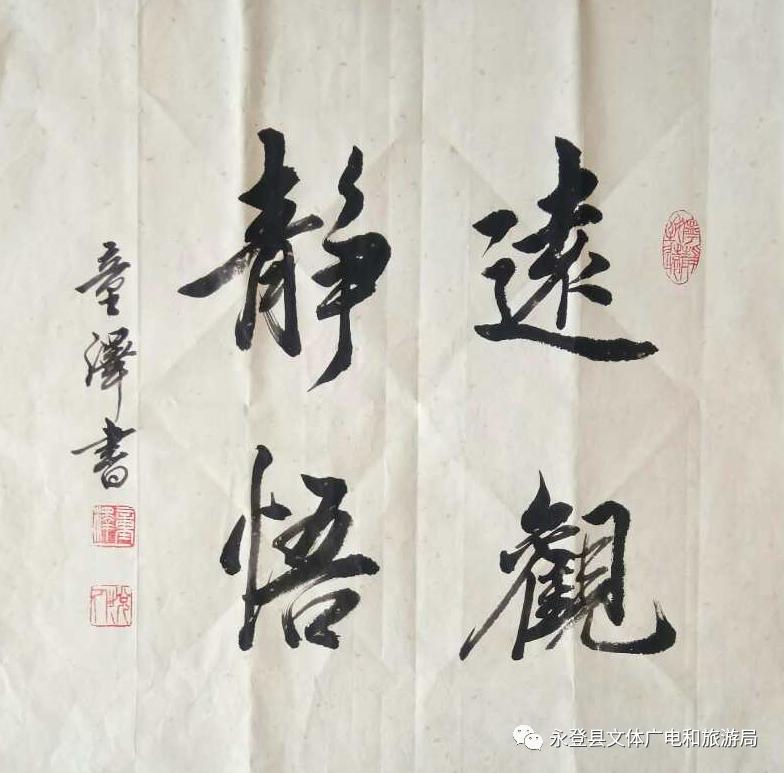 遠觀
靜悟
童澤書
童澤
永登县文体广电和旅游局